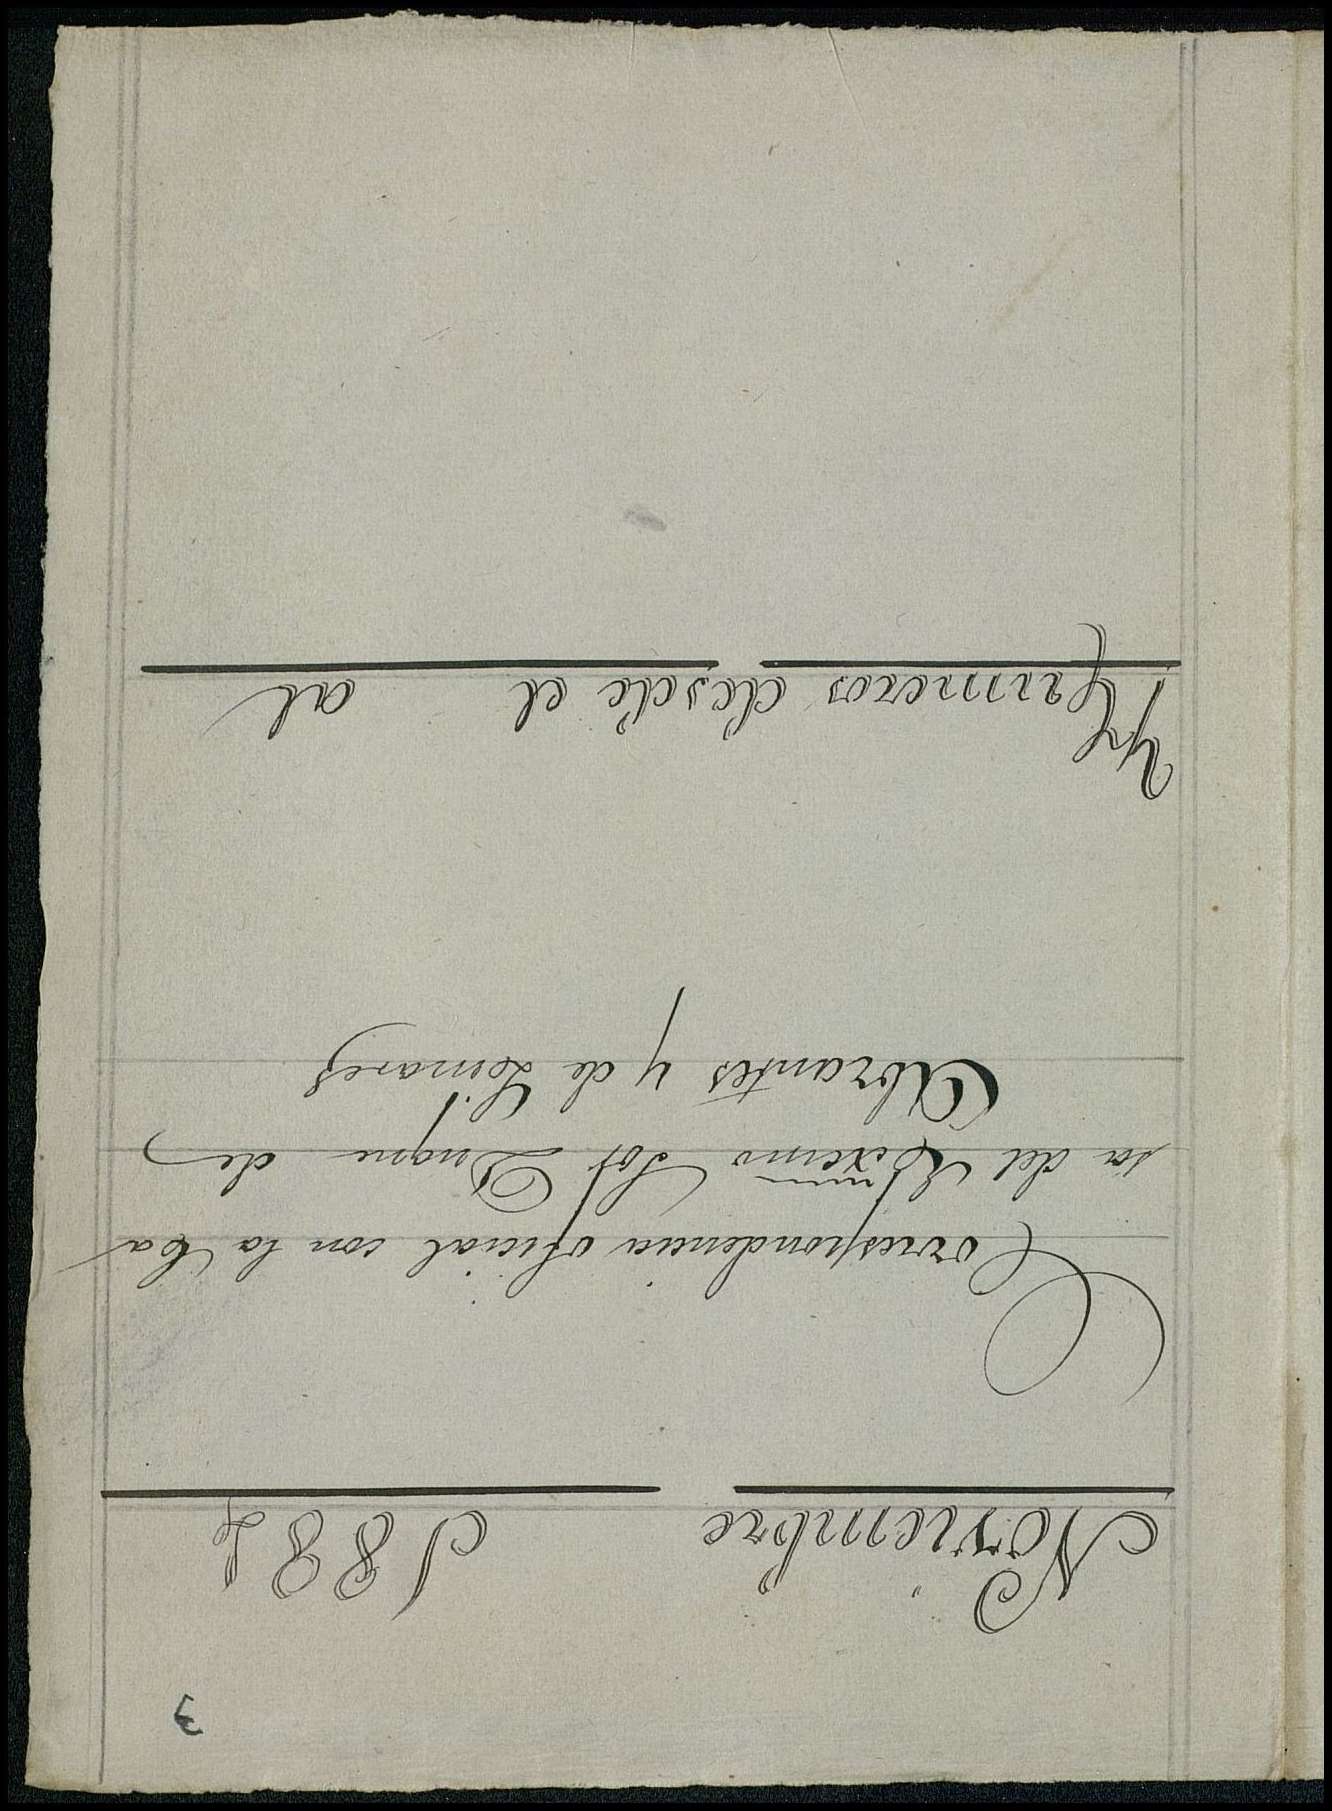 3
Noviembre 1884
Correspondencia oficial con la Ca
sa del Excmo Sor Duque de
Abrantes y de Linares
Numeros desde el al